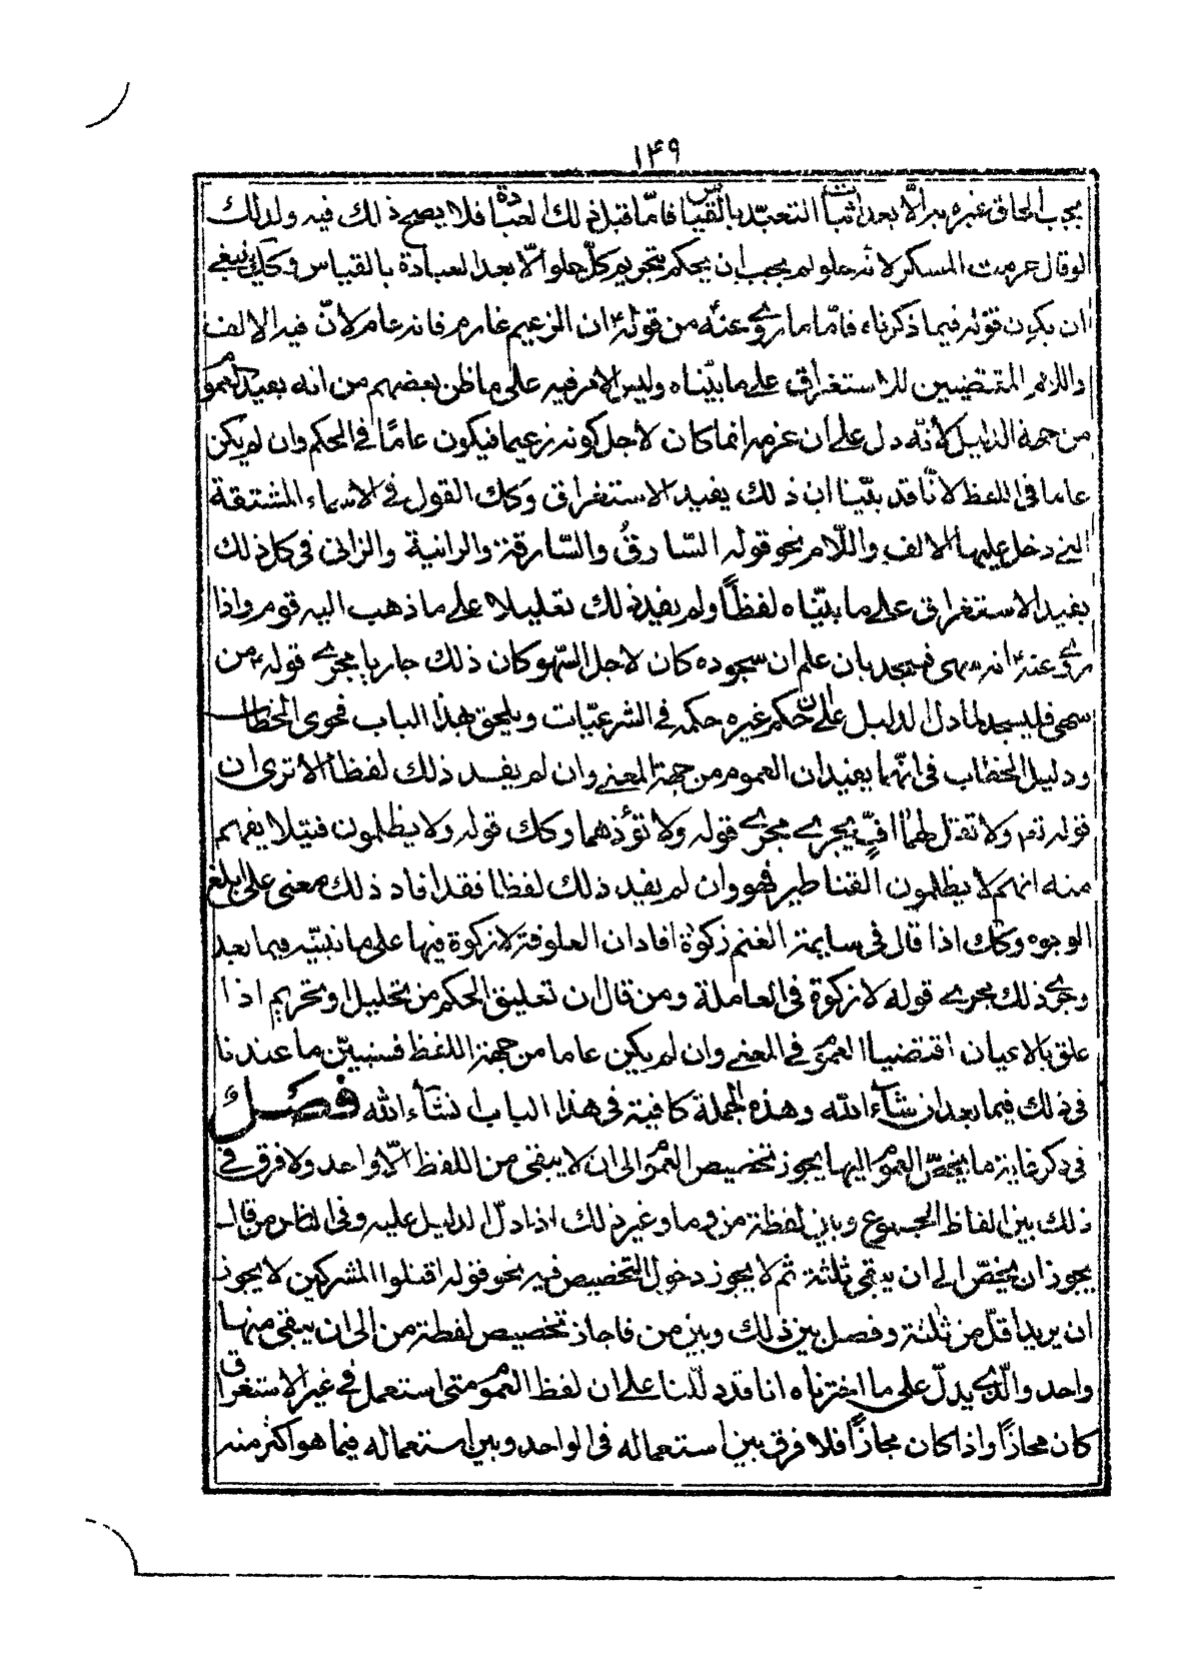 ۱۴۹
يجب الحاق غيره به الّا بعد اثبات التعبّد بالقياس فامّا قبل ذلك العبادة فلا يصح ذلك فيه ولذلك
لو قال حرمت المسكر لانه حلو لم يجب ان يحكم بتحريم كلّ حلو الّا بعد العبادة بالقياس وكك ينبغي
ان يكون قوله فيما ذكرناه فامّا ما روى عنه من قوله ان الزعيم غارم فانه عام لانّ فيه الالف
واللام المقتضيين للاستغراق على ما بيّناه وليس الامر فيه على ما ظن بعضهم من انه يفيد العموم
من جهة الدليل لأنّه دل على ان غرمه انما كان لاجل كونه زعيما فيكون عامّا في الحكم وان لم يكن
عاما في اللفظ لانّا قد بيّنا ان ذلك يفيد الاستغراق وكك القول في الاسماء المشتقة
التي دخل عليها الالف واللّام نحو قوله السّارقُ والسّارقة والزانية والزانى في كل ذلك
يفيد الاستغراق على ما بيّناه لفظاً ولم يفيد ذلك تعليلا على ما ذهب اليه قوم واذا
روى عنه انه سهى فسجد بان علم ان سجوده كان لاجل السّهو كان ذلك جاريا مجرى قوله من
سهى فليسجد لما دل الدليل على ان حكم غيره حكمه في الشرعيّات ويلحق بهذا الباب فحوى الخطاب
ودليل الخطاب في انّهما يفيدان العموم من جهة المعنى وان لم يفيد ذلك لفظا الا ترى ان
قوله تم ولا تقل لهما افٍّ يجرى مجرى قوله ولا تؤذهما وكك قوله ولا يظلمون فتيلا يفهم
منه انهم لا يظلمون القناطير فهو وان لم يفيد ذلك لفظا فقد افاد ذلك معنى على ابلغ
الوجوه وكك اذا قال في سايمة الغنم زكوة افاد ان العلوفة لا زكوة فيها على ما نبيّنه فيما بعد
وجرى ذلك مجرى قوله لا زكوة في العاملة ومن قال ان تعليق الحكم من تحليل او تحريم اذا
علق بالاعيان اقتضيا العموم في المعنى وان لم يكن عاما من جهة اللفظ فسنبيّن ما عندنا
في ذلك فيما بعد ان شآء الله وهذه الجملة كافية في هذا الباب انشآء الله فصل
في ذكر غاية ما يخصّ العموم اليها يجوز تخصيص العموم الى ان لا يبقى من اللفظ الّا واحد ولا فرق في
ذلك بين الفاظ الجموع وبين لفظة من وما وغير ذلك اذا دلّ الدليل عليه وفي الناس من قال
يجوز ان يخصّ الى ان يبقى ثلثة ثم لا يجوز دخول التخصيص فيه نحو قوله اقتلوا المشركين لا يجوز
ان يريد اقلّ من ثلثة وفصل بين ذلك وبين من فاجاز تخصيص لفظة من الى ان يبقى منها
واحد والّذى يدلّ على ما اخترناه انا قد دلّلنا على ان لفظ العموم متى استعمل في غير الاستغراق
كان مجازاً واذا كان مجازاً فلا فرق بين استعماله في الواحد وبين استعماله فيما هو اكثر منه